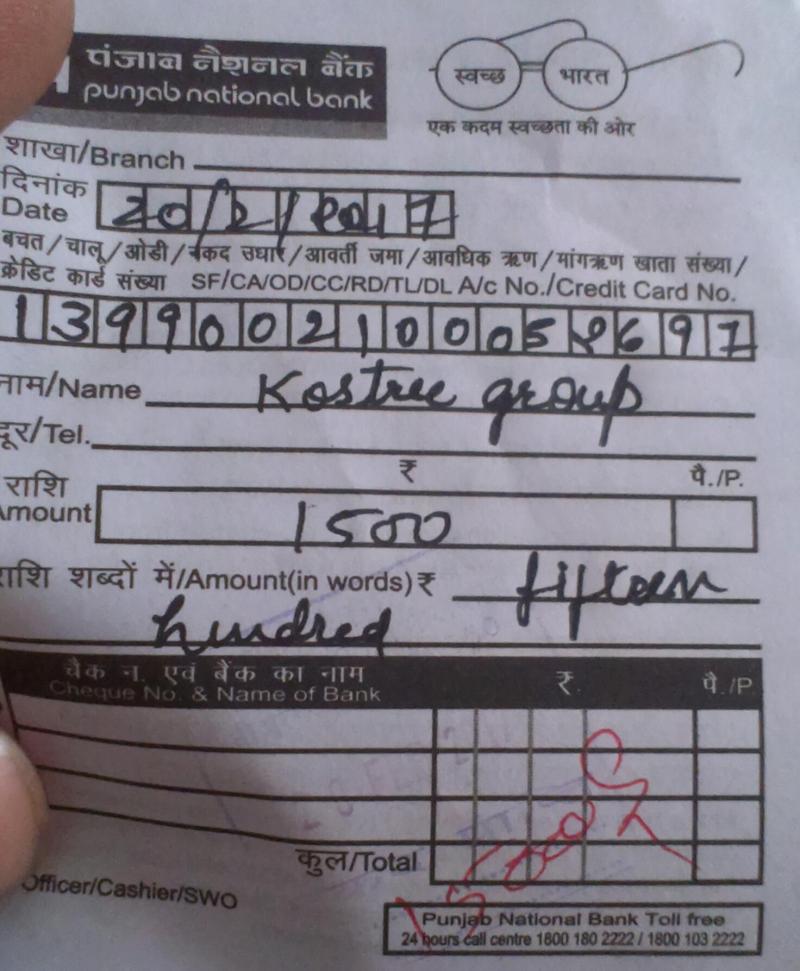 पंजाब नैशनल बैंक
punjab national bank
स्वच्छ भारत
एक कदम स्वच्छता की ओर
शाखा/Branch
दिनांक
Date 20/2/2017
बचत/चालू/ओडी/नकद उधार/आवर्ती जमा/आवधिक ऋण/मांगऋण खाता संख्या/
क्रेडिट कार्ड संख्या SF/CA/OD/CC/RD/TL/DL A/c No./Credit Card No.
1399002100058697
नाम/Name Kostree group
दूर/Tel.
₹ पै./P.
राशि
Amount 1500
राशि शब्दों में/Amount(in words) ₹ fifteen
hundred
चैक न. एवं बैंक का नाम ₹. पै./P
Cheque No. & Name of Bank
1500
कुल/Total
Officer/Cashier/SWO
Punjab National Bank Toll free
24 hours call centre 1800 180 2222 / 1800 103 2222